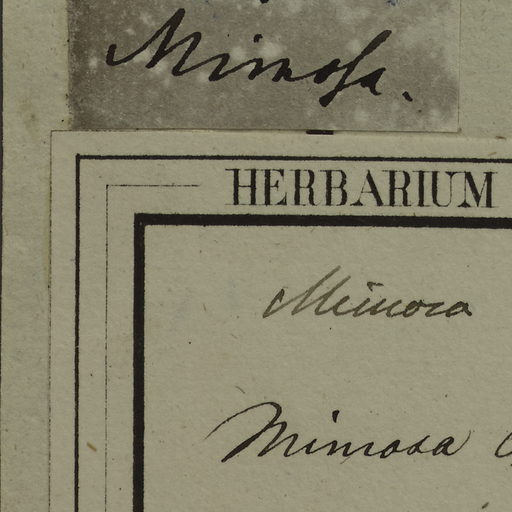 Mimosa.
HERBARIUM
Mimosa
Mimosa